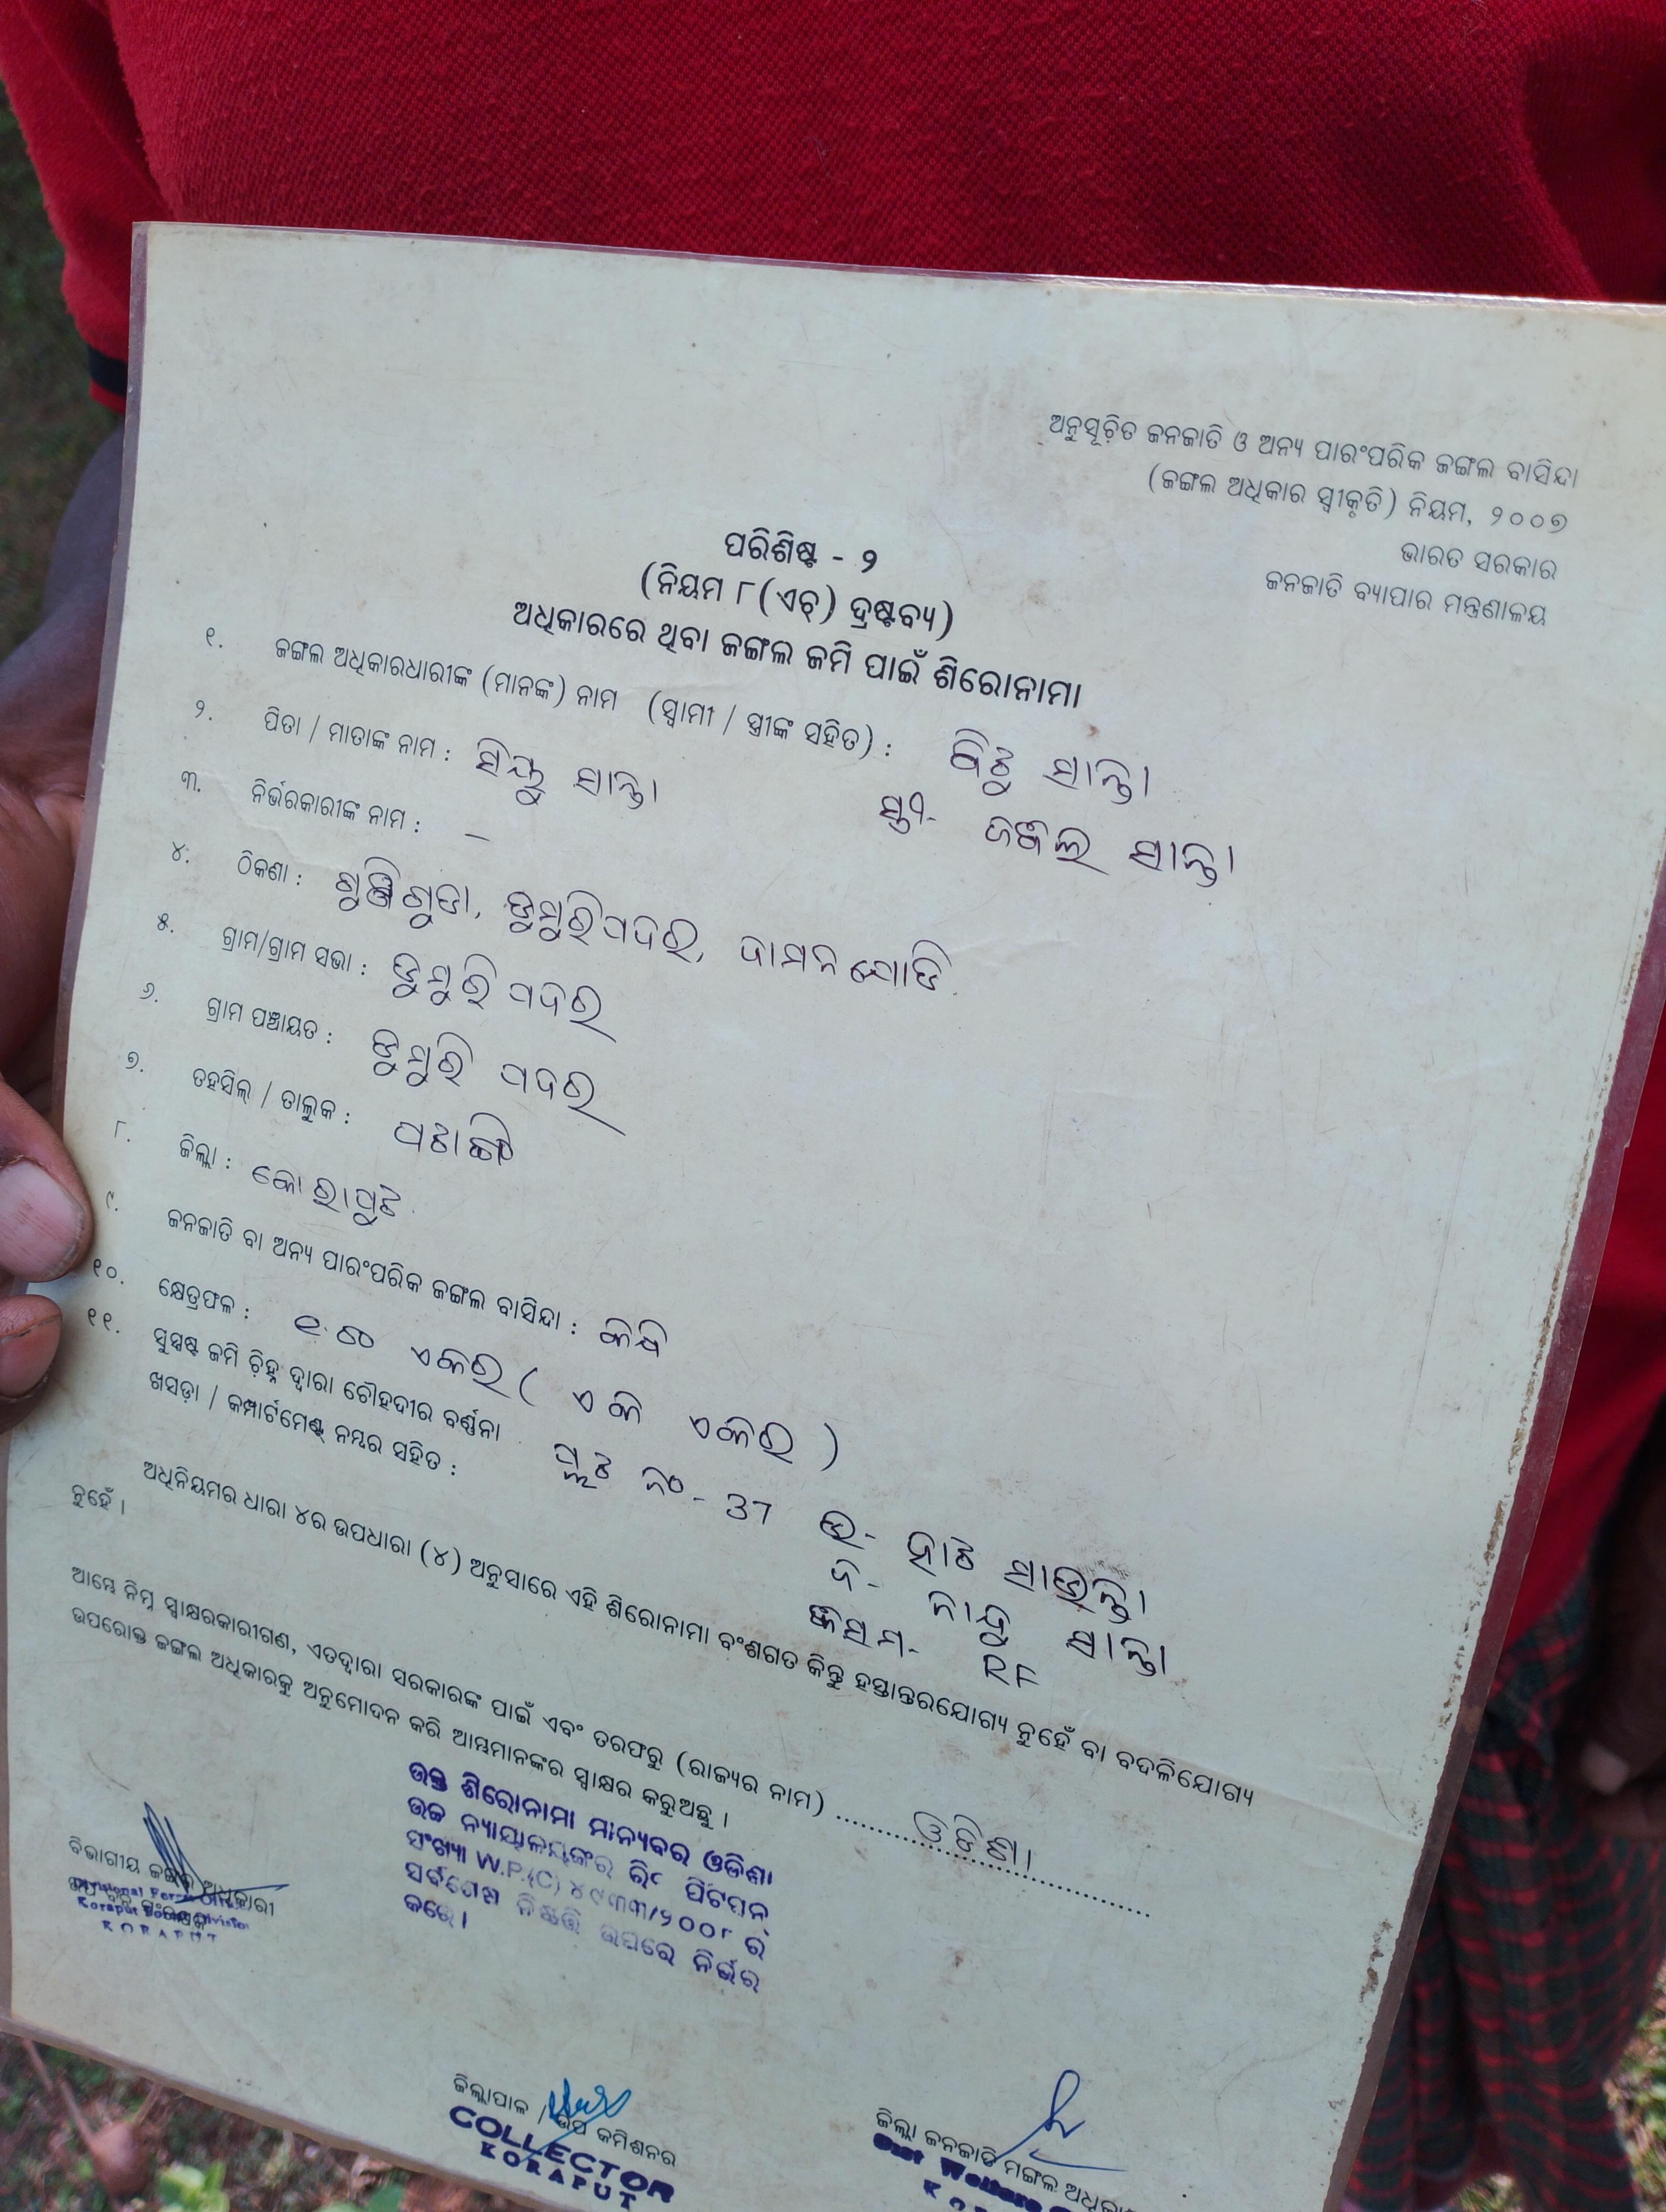 ଅନୁସୂଚିତ ଜନଜାତି ଓ ଅନ୍ୟ ପାରଂପରିକ ଜଙ୍ଗଲ ବାସିନ୍ଦା
(ଜଙ୍ଗଲ ଅଧିକାର ସ୍ୱୀକୃତି) ନିୟମ, ୨୦୦୭
ଭାରତ ସରକାର
ଜନଜାତି ବ୍ୟାପାର ମନ୍ତ୍ରଣାଳୟ
ପରିଶିଷ୍ଟ - ୨
(ନିୟମ ୮(ଏଚ୍) ଦ୍ରଷ୍ଟବ୍ୟ)
ଅଧିକାରରେ ଥିବା ଜଙ୍ଗଲ ଜମି ପାଇଁ ଶିରୋନାମା
୧. ଜଙ୍ଗଲ ଅଧିକାରଧାରୀଙ୍କ (ମାନଙ୍କ) ନାମ (ସ୍ୱାମୀ / ସ୍ତ୍ରୀଙ୍କ ସହିତ) : ସାନ୍ତା
ସ୍ତ୍ରୀ- ସାନ୍ତା
୨. ପିତା / ମାତାଙ୍କ ନାମ : ସାନ୍ତା
୩. ନିର୍ଭରକାରୀଙ୍କ ନାମ : —
୪. ଠିକଣା : ଡୁମୁରିପଦର, ଦାମନଯୋଡି
୫. ଗ୍ରାମ/ଗ୍ରାମ ସଭା : ଡୁମୁରି ପଦର
୬. ଗ୍ରାମ ପଞ୍ଚାୟତ : ଡୁମୁରି ପଦର
୭. ତହସିଲ୍ / ତାଲୁକ : ପଟାଙ୍ଗି
୮. ଜିଲ୍ଲା : କୋରାପୁଟ
୯. ଜନଜାତି ବା ଅନ୍ୟ ପାରଂପରିକ ଜଙ୍ଗଲ ବାସିନ୍ଦା :
୧୦. କ୍ଷେତ୍ରଫଳ : ଏକର ( ଏକ ଏକର )
୧୧. ସୁସ୍ପଷ୍ଟ ଜମି ଚିହ୍ନ ଦ୍ୱାରା ଚୌହଦୀର ବର୍ଣ୍ଣନା
ଖସଡ଼ା / କମ୍ପାର୍ଟମେଣ୍ଟ ନମ୍ବର ସହିତ : ପ୍ଲଟ ନଂ - 37 ଉ-
ଦ- ସାନ୍ତା
କିସମ- RF
ଅଧିନିୟମର ଧାରା ୪ର ଉପଧାରା (୪) ଅନୁସାରେ ଏହି ଶିରୋନାମା ବଂଶଗତ କିନ୍ତୁ ହସ୍ତାନ୍ତରଯୋଗ୍ୟ ନୁହେଁ ବା ବଦଳିଯୋଗ୍ୟ
ନୁହେଁ ।
ଆମ୍ଭେ ନିମ୍ନ ସ୍ୱାକ୍ଷରକାରୀଗଣ, ଏତଦ୍ୱାରା ସରକାରଙ୍କ ପାଇଁ ଏବଂ ତରଫରୁ (ରାଜ୍ୟର ନାମ) ଓଡିଶା
ଉପରୋକ୍ତ ଜଙ୍ଗଲ ଅଧିକାରକୁ ଅନୁମୋଦନ କରି ଆମ୍ଭମାନଙ୍କର ସ୍ୱାକ୍ଷର କରୁଅଛୁ ।
ଉକ୍ତ ଶିରୋନାମା ମାନ୍ୟବର ଓଡିଶା
ଉଚ୍ଚ ନ୍ୟାୟାଳୟଙ୍କର ରିଟ ପିଟିସନ୍
ସଂଖ୍ୟା W.P.(C) ୪୯୩୩/୨୦୦୮ ର
ସର୍ବଶେଷ ନିଷ୍ପତ୍ତି ଉପରେ ନିର୍ଭର
କରେ ।
ବିଭାଗୀୟ ଜଙ୍ଗଲ ଅଧିକାରୀ
Divisional Forest Officer
Koraput Division
KORAPUT
ଜିଲ୍ଲାପାଳ / ଉପ କମିଶନର
COLLECTOR
KORAPUT
ଜିଲ୍ଲା ଜନଜାତି ମଙ୍ଗଳ
Welfare